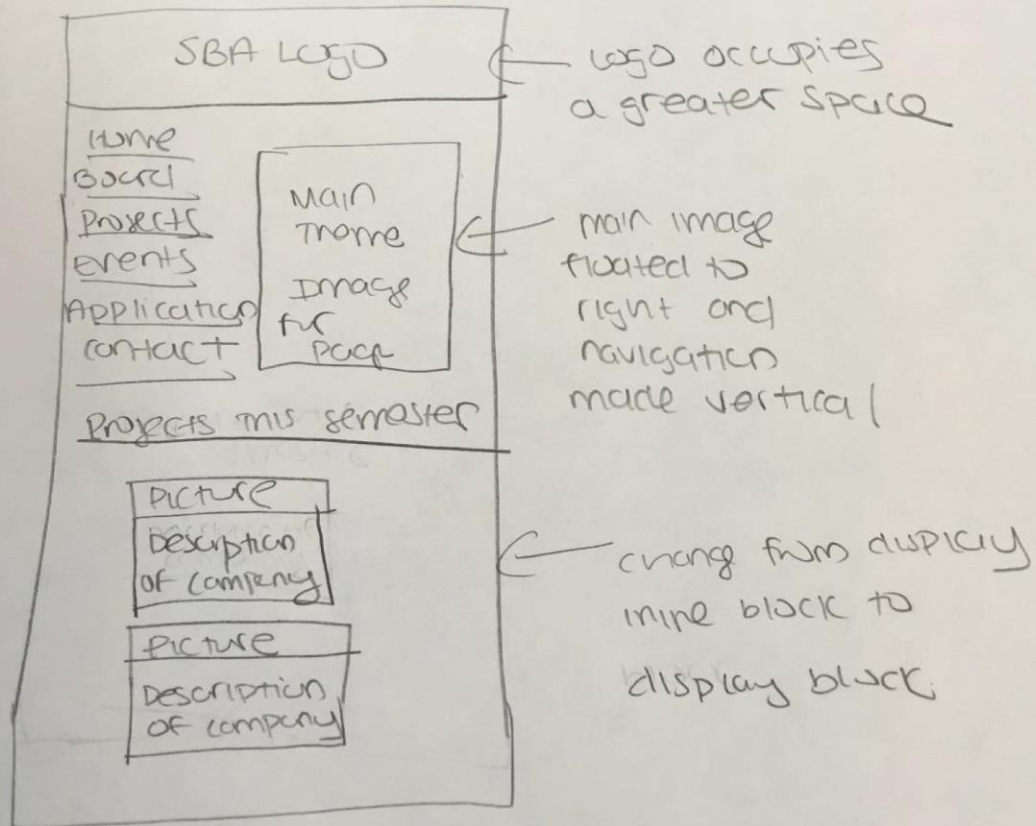 SBA Logo
Logo occupies
a greater space
Home
Board
Projects
events
Application
contact
Main
Theme
Image
for
page
main image
floated to
right and
navigation
made vertical
Projects this semester
Picture
Description
of company
Picture
Description
of company
change from display
inline block to
display block